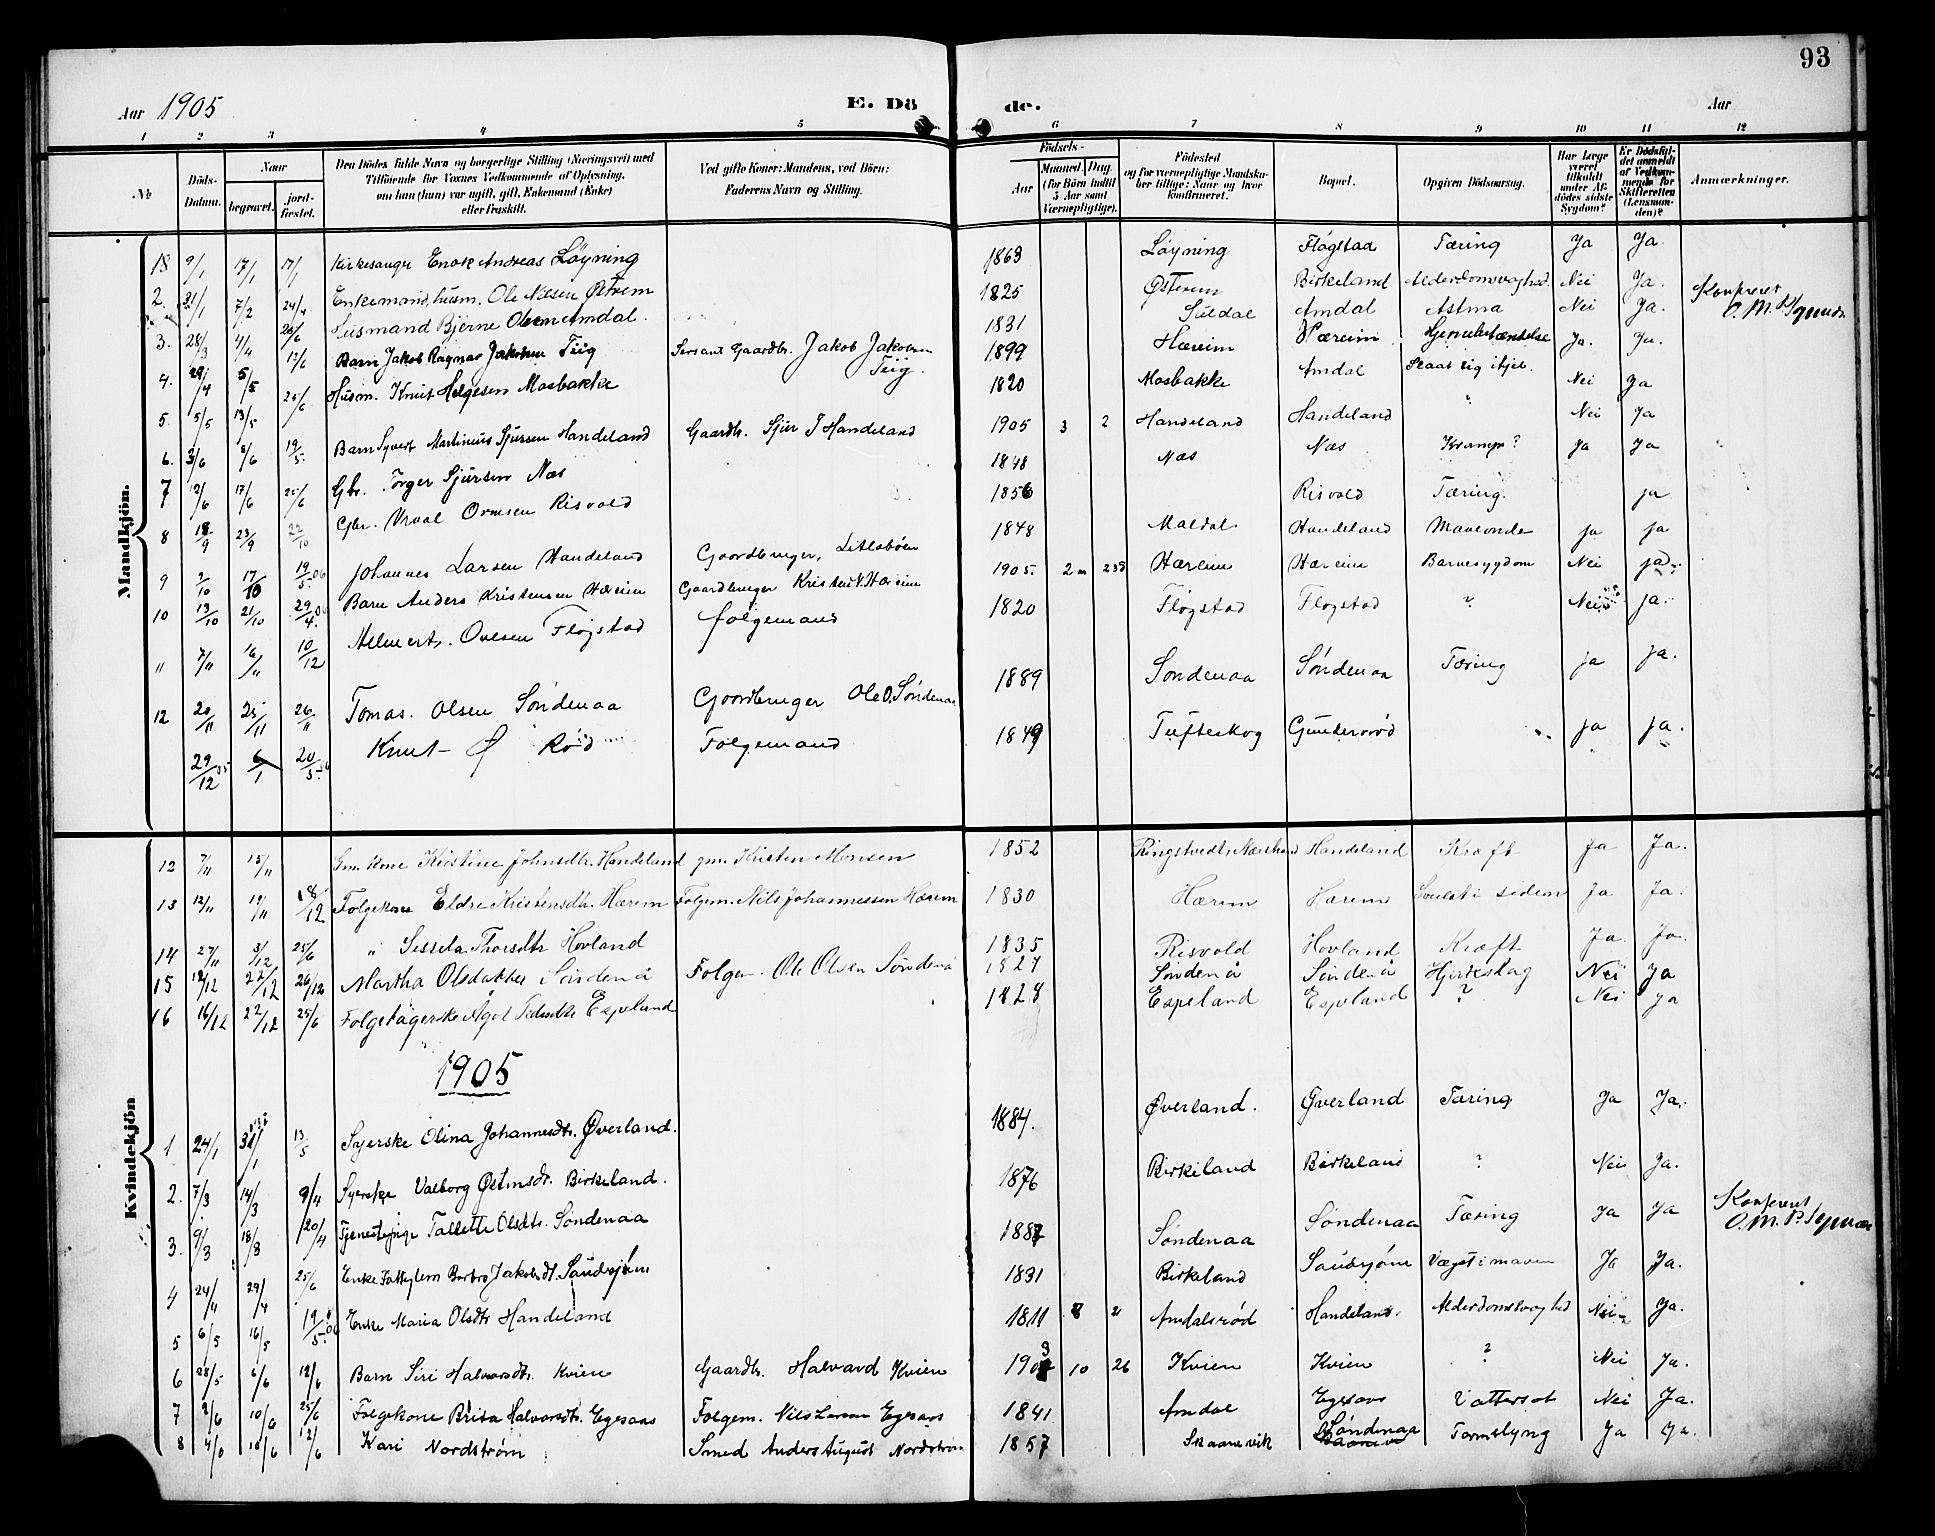 93
Aar 1905 E. Dö de. Aar
1 2 3 4 5 6 7 8 9 10 11 12
№ Döds-Datum. Naar begravet. jordfæstet. Den Dödes fulde Navn og borgerlige Stilling (Næringsvei) med Tilföiende for Voxnes Vedkommende af Oplysning, om han (hun) var ugift, gift, Enkemand (Enke) eller fraskilt. Ved gifte Koner: Mandens, ved Börn: Faderens Navn og Stilling. Födsels- Aar Maaned. Dag. (for Börn indtil 5 Aar samt Værnepligtige). Födested og for værnepligtige Mandskaber tillige: Naar og hvor konfirmeret. Bopæl. Opgiven Dödsaarsag. Har Læge været tilkaldt under Afdödes sidste Sygdom? Er Dödsfaldet anmeldt af Vedkommende for Skifteretten (Lensmanden)? Anmærkninger.
Mandkjön.
18 9/1 17/1 17/1 Kirkesanger Enok Andreas Løyning 1863 Løyning Fløgstad Tæring Ja Ja.
2. 21/1 7/2 24/4 Enkemand, husm. Ole Nilsen Østrem 1825 Østrem Birkeland Alderdomsvaghed Nei Ja. Konfereret
Husmand Bjerne Olsen Amdal. 1831 Suldal Amdal Astma Nei Ja. O. M. P.
3. 28/3 4/4 Barn Jakob Ragnar Jakobsen Teig Gaardbr. Jakob Jakobsen Teig. 1899 Hæreim Hæreim Hjernebetændelse Ja. Ja.
4. 29/4 5/5 25/6 Husm. Knut Helgesen Mosbakke 1820 Mosbakke Amdal Slaat sig ihjel. Nei Ja
5. 5/5 13/5 Barn Syvert Martinius Sjursen Handeland Gaardb. Sjur J Handeland 1905 3 2 Handeland Handeland " Nei Ja
6. 3/6 8/6 19/5. Gbr. Torger Sjursen Næs 1848 Næs Næs Krampe? Ja Ja
7 12/6 17/6 25/6 Gbr. Vraal Ormsen Risvold 1856 Risvold Tæring. ja
8 18/9 23/9 22/10 Johannes Larsen Handeland Gaardbruger, Litlebøen 1848 Maldal Handeland Maveonde ja ja
9 9/10 17/10 19/5 06 Barn Anders Kristensen Hæreim Gaardbruger Kristen N. Hæreim 1905. 2 m 23 Hæreim Hæreim Barnesygdom Nei ja
10 13/10 21/10 29/4. 06 Ovesen Fløgstad følgemand 1820 Fløgstad Fløgstad ? Nei ja.
" 7/11 16/11 10/12 Tomas. Olsen Søndenaa Gaardbruger Ole O. Søndenaa 1889 Søndenaa Søndenaa Tæring ja ja.
12 20/11 25/11 26/11 Knut Ø Rød Følgemand 1849 Tufteskog Gundersrød ja ja.
29/12 05 6/1 20/5. 06
Kvindekjön
12 7/11 15/11 Gm. Kone Kristine Johnsdtr. Handeland gm. Kristen Monsen 1852 Ringstvedt, Handeland Kræft Ja Ja.
13 12/11 19/11 18/12 Folgekone Eldre Kristensdtr. Hærem Folgem. Nils Johannessen Hærem 1830 Hærem Hærem Svulst i siden Ja Ja.
14 27/11 3/12 25/6 " Sessela Thorsdtr Hovland 1835 Risvold Hovland Kræft Ja. Ja.
15 19/12 27/12 26/12 Martha Olsdatter Søndenå Folgem. Ole Olsen Søndenå 1827 Søndenå Søndenå Hjerteslag Nei Ja
16 16/12 22/12 25/6 Ågot Espeland 1828 Espeland Espeland ? Nei ja
1905
1 24/1 31/1 13/5 Syerske Olina Johannesdtr. Øverland. 1884. Øverland. Øverland Tæring Ja Ja.
2. 7/3 14/3 9/4 Syerske Valborg Birkeland. 1876 Birkeland Birkeland ? Nei Ja.
3. 9/3 18/3 20/4 Tjenestepige Tallette Olsdtr. Søndenaa 1887 Søndenaa Søndenaa Tæring Ja Ja Konfereret O. M. P.
4 24/4 29/4 25/6 Enke Fattiglem Barbro Jakobsdt. Sandsjøen 1831 Birkeland Sandsjøen Væxt i maven Ja Ja.
5 6/5 16/5 19/5. 06 Enke Maria Olsdtr Handeland 1811 8 2 Amdalsrød Handeland. Alderdomsvaghed Nei Ja.
6 28/5 6/6 12/6 Barn Siri Halvorsdtr. Kvien Gaardb. Halvard Kvien 1903 10 26 Kvien Kvien ? Nei Ja.
7 2/6 10/6 25/6 Folgekone Brita Halvorsdtr. Egesaas Folgem. Nils Larsen Egesaas 1841 Amdal Egesaas Vattersot Nei Ja.
8 4/6 10/6 12/6 Kari Nordstrøm Smed Anders August Nordstrøm 1857 Skaanevik Søndenaa Tarmslyng Ja Ja.